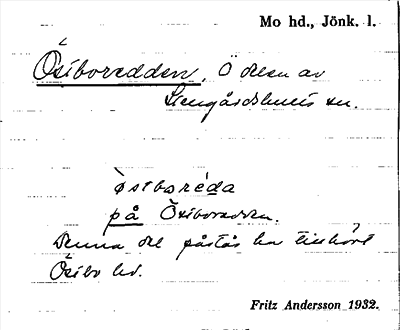 Mo hd., Jönk. l.
Östboredden, Ö delen av
Stengårdshults sn.
östboréda
på Östboredden.
Denna del påstås ha tillhört
Östbo hd.
Fritz Andersson 1932.